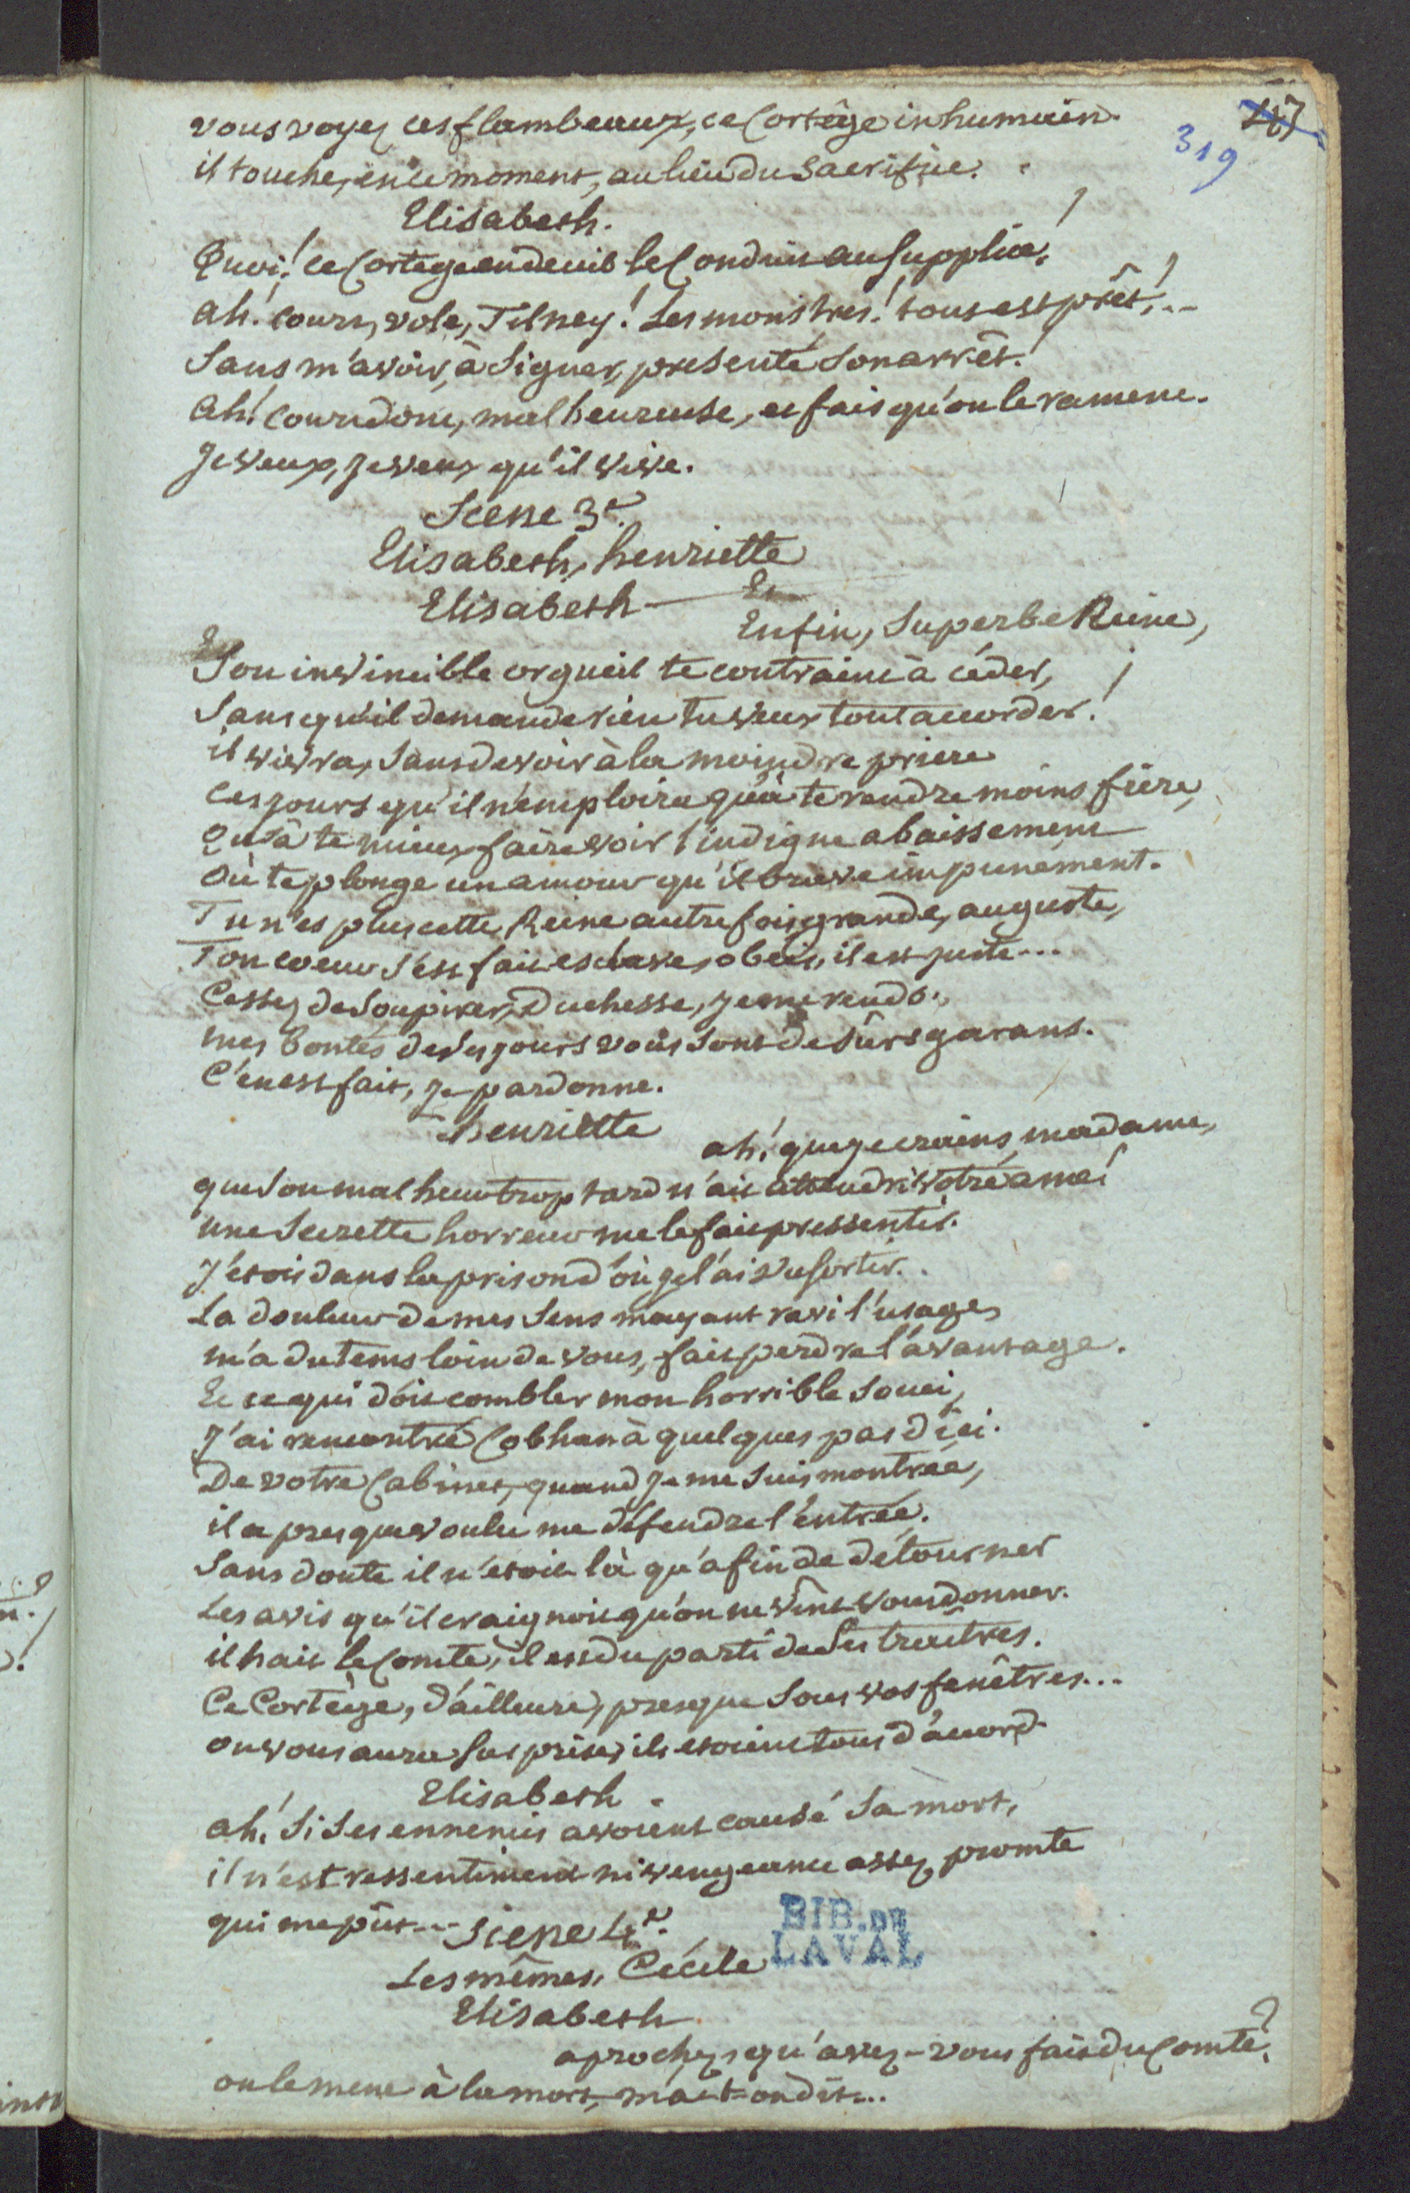 vous voyez ces flambeaux, ce Cortége inhumain.
il touche, en ce moment, au lieu du Sacrifice.
Elisabeth.
Quoi! ce Cortege en deuil le Conduit au Supplice!
ah! cours, vole, Tilney! Les monstres! tout est prêt!...
Sans m'avoir, à Signer, présenté Son arrêt!
ah! cours donc, malheureuse, et fais qu'on le ramene.
Je veux, je veux qu'il vive.
Scene 3e.
Elisabeth, henriette
Elisabeth
Enfin, Superbe Reine,
Son invincible orgueil te contraint à céder,
Sans qu'il demande rien tu veux tout accorder!
il vivra, Sans devoir à la moindre priere
Ces jours qu'il n'emploira qu'à te rendre moins fiere,
Qu'à te mieux faire voir l'indigne abaissement
Où te plonge un amour qu'il brave impunément.
Tu n'es plus cette Reine autrefois grande, auguste,
Ton coeur S'est fait esclave, obéis, il est juste...
Cessez de Soupirer, Duchesse, je me rends.
mes bontés de Ses jours vous Sont de Sûrs garans.
C'en est fait, je pardonne.
henriette
ah! que je crains, madame,
que Son malheur trop tard n'ait attendri votre ame!
une Secrette horreur me le fait pressentir.
J'étois dans la prison d'où je l'ai vu Sortir.
La douleur de mes Sens m'ayant ravi l'usage,
m'a du tems loin de vous, fait perdre l'avantage.
Et ce qui doit combler mon horrible Souci,
J'ai rencontré Cobham à quelques pas d'ici.
De votre Cabinet, quand je me Suis montrée,
il a presque voulu me défendre l'entrée.
Sans doute il n'étoit là qu'afin de détourner
Les avis qu'il craignoit qu'on ne vînt vous donner.
il hait le Comte, il est du parti de Ses traîtres.
Ce Cortège, d'ailleurs, presque Sous vos fenêtres...
on vous aura Surprise, ils étoient tous d'accord
Elisabeth.
ah! Si Ses ennemis avoient causé Sa mort,
il n'est ressentiment ni vengeance assez promte
qui me pût...
Scene 4e.
Les mêmes, Cécile
Elisabeth
aprochez, qu'avez-vous fait du Comte?
on le mene à la mort, m'a-t-on dit...
319
BIB. DE
LAVAL